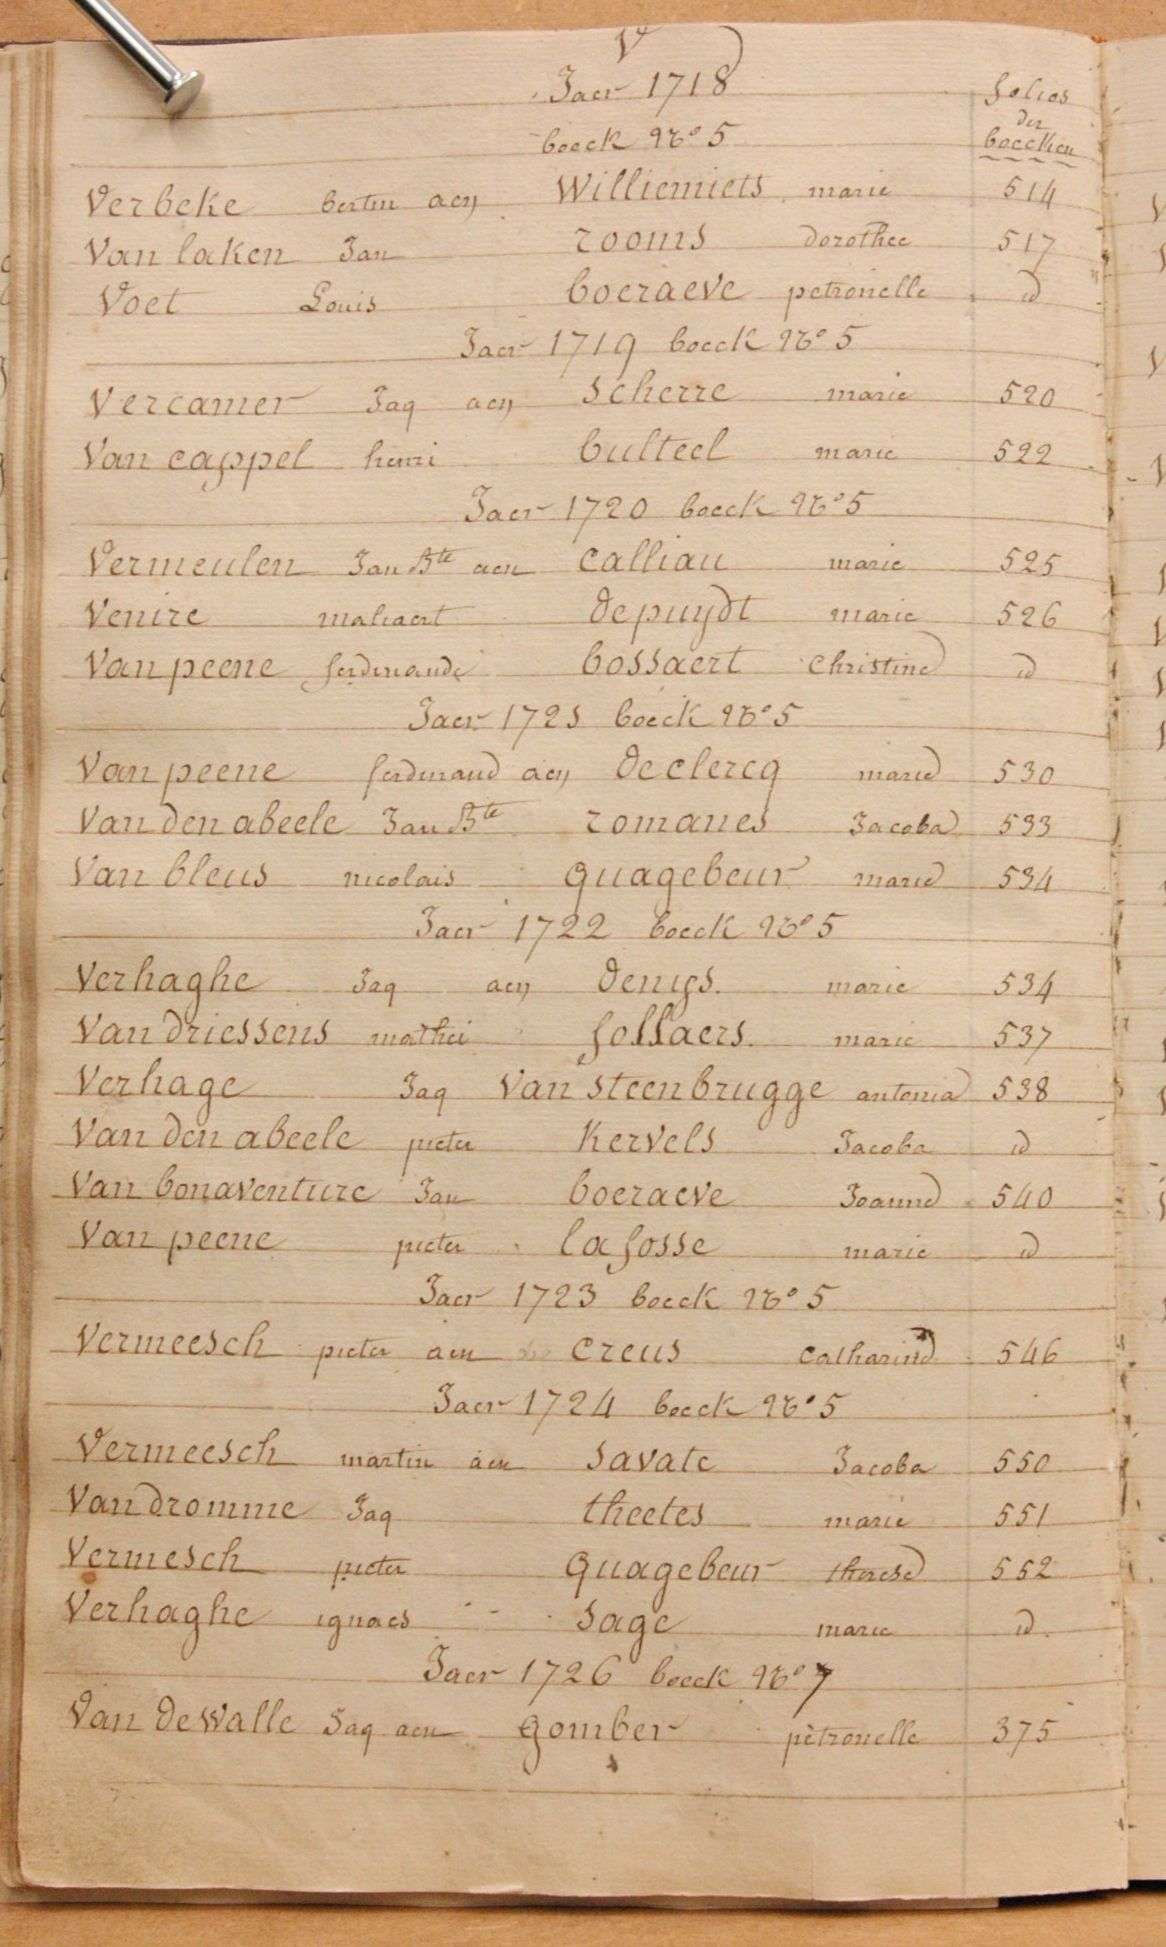 V
Jaer 1718 folios
der
boeck No 5 boecken
Verbeke bertin aen Williemiets marie 514
Van laken Jan rooms dorothee 517
Voet Louis boeraeve petronelle id
Jaer 1719 boeck No 5
Vercamer Jaq aen scherre marie 520
Van cappel henri bulteel marie 522
Jaer 1720 boeck No 5
Vermeulen Jan Bte aen calliau marie 525
Venire maliaert depuydt marie 526
Van peene ferdinande bossaert Christine id
Jaer 1721 boeck No 5
Van peene ferdinand aen declercq marie 530
Van den abeele Jan Bte romanes Jacoba 533
Van bleus nicolais quagebeur marie 534
Jaer 1722 boeck No 5
Verhaghe Jaq aen denys. marie 534
Van driessens mathei follaers. marie 537
Verhage Jaq Van steenbrugge antonia 538
Van den abeele pieter Kervels Jacoba id
Van bonaventure Jan boeraeve Joanne 540
Van peene pieter lafosse marie id
Jaer 1723 boeck No 5
Vermeesch pieter aen creus catharine 546
Jaer 1724 boeck No 5
Vermeesch martin aen savate Jacoba 550
Van dromme Jaq theetes marie 551
Vermesch pieter quagebeur therese 552
Verhaghe ignaes sage marie id.
Jaer 1726 boeck No 7
Van de Walle Jaq aen gomber petronelle 375